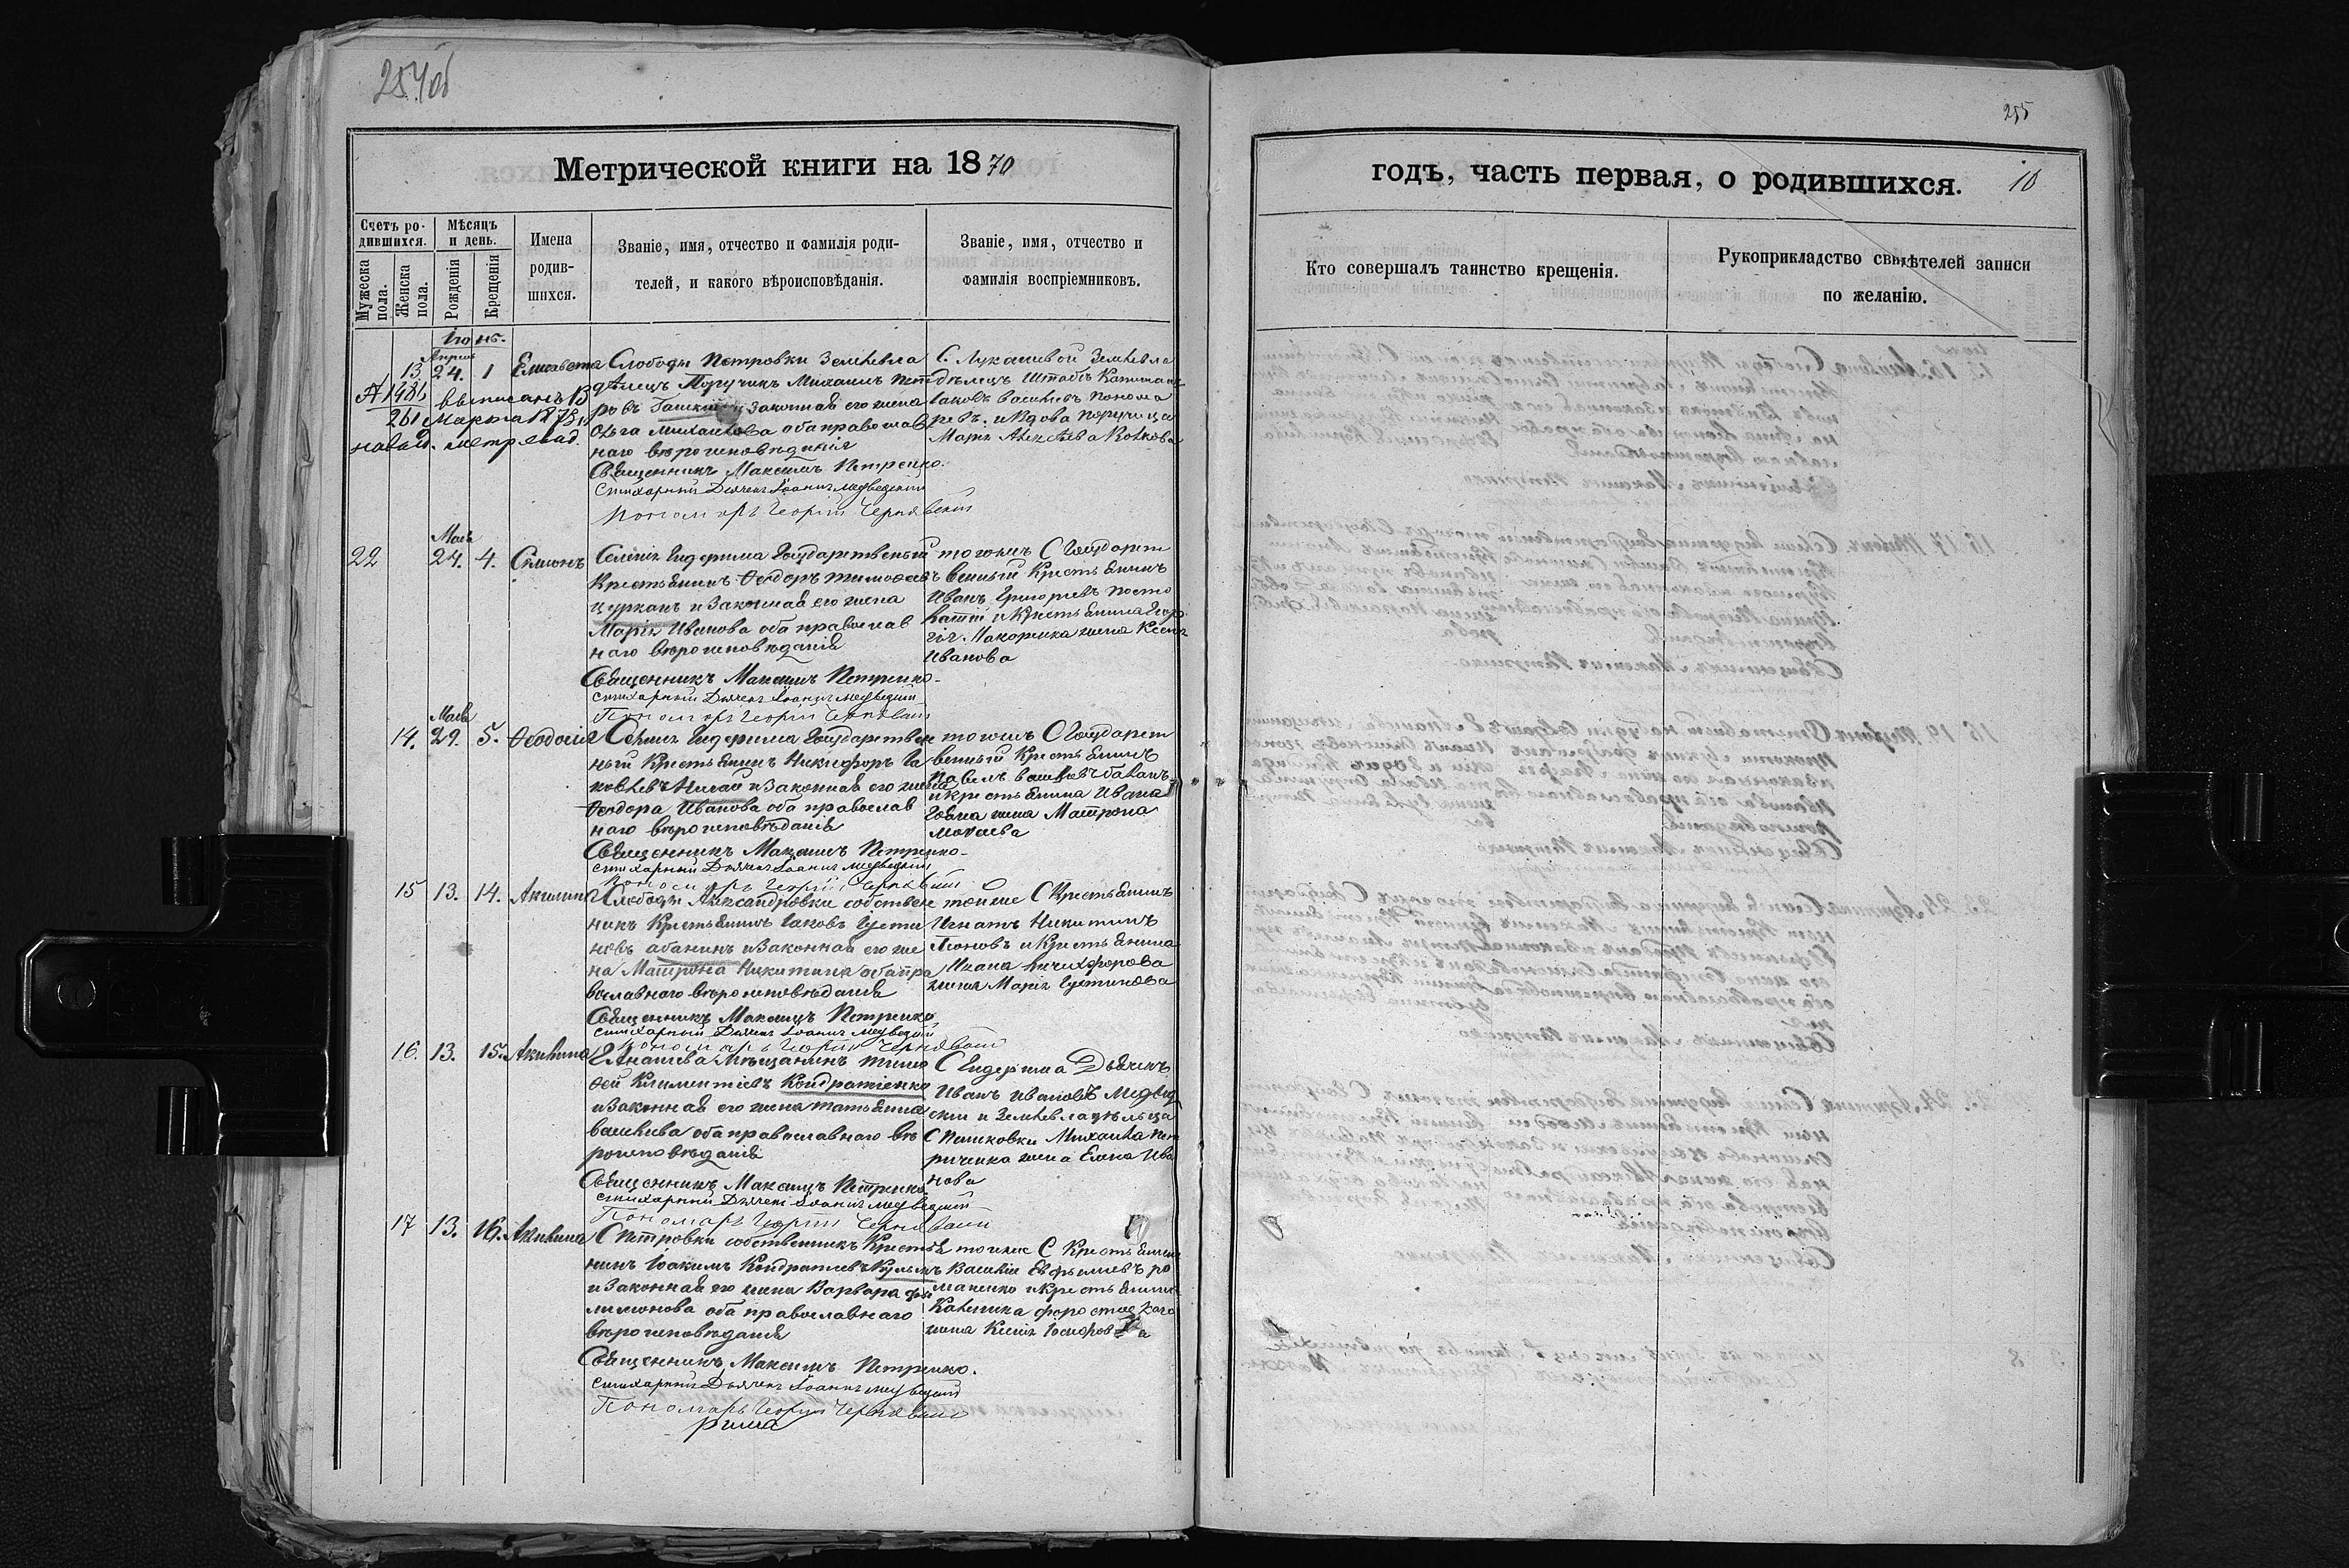 254об
Метрической книги на 1870
Счетъ родившихся.
Мужеска пола.
Женска пола.
Мѣсяцъ и день.
Рожденія
Крещенія
Имена родившихся.
Званіе, имя, отчество и фамилія родителей, и какого вѣроисповѣданія.
Званіе, имя, отчество и фамилія воспріемниковъ.
Іюнь.
Апрель
13 24. 1 Елисавета
Слободы Петровки Землевла
дѣлецъ Поручикъ Михаилъ Пет
ровъ законная его жена
Ольга Михайлова оба православ
наго вѣроисповѣданія
Священникъ Максимъ Петренко.
Стихарный Дьячекъ Іоаннъ Медведский
Пономарь Георгій Чернявскій
С. Лукашевой Землевла
дѣлецъ Штабсъ Капитанъ
Іаковъ Васильевъ Понома
ревъ. и Вдова Поручица
Марія Алексѣева Волкова
Марта 1875
Мая
22 24. 4. Симонъ
Селенія Гидерима Государственый
Крестьянинъ Ѳеодоръ Тимофеевъ
Цурканъ и Законная его жена
Марія Иванова оба православ
наго вѣроисповѣданія
Священникъ Максимъ Петренко
Стихарный Дьячекъ Іоаннъ Медведский
Пономарь Георгій Чернявскій
тогожъ С Государст
венный Крестьянинъ
Иванъ Григорьевъ Посто
латій и Крестьянина Геор
гія Макорика жена Ксенія
Иванова
Мая
14. 29. 5. Ѳеодосія
Селенія Гидерима Государствен
ный Крестьянинъ Никифоръ Іа
ковлевъ и Законная его жена
Ѳеодора Иванова оба православ
наго вѣроисповѣданія
Священникъ Максимъ Петренко
Стихарный Дьячекъ Іоаннъ Медведский
Пономарь Георгій Чернявскій
тогожъ С Государст
венный Крестьянинъ
Павелъ Васильевъ
и Крестьянина Ивана
жена Матрона
15 13. 14. Акилина
Слободы Александровки собствен
никъ Крестьянинъ Іаковъ Густи
новъ и Законная его же
на Матрона Никитина оба пра
вославнаго вѣроисповѣданія
Священникъ Максимъ Петренко
Стихарный Дьячекъ Іоаннъ Медведский
Пономарь Георгій Чернявскій
тойже С Крестьянинъ
Игнатъ Никитинъ
Леоновъ и Крестьянина
Ивана Никифорова
жена Марія Густинова
16. 13. 15. Акилина
Г Ананьева Мѣщанинъ Тимо
фей Климентіевъ Кондратенко
и Законная его жена Татьяна
Васильева оба православнаго вѣ
роисповѣданія
Священникъ Максимъ Петренко
Стихарный Дьячекъ Іоаннъ Медведский
Пономарь Георгій Чернявскій
С Гидерима Дьячекъ
Иванъ Ивановъ Медвед
ский и Землевладѣльца
С Михаила Пет
риченка жена Елена Ива
нова
17 13. 16. Акилина
С Петровки собственникъ Крестья
нинъ Іоакимъ Кондратьевъ
и Законная его жена Варвара Фи
лимонова оба православнаго
вѣроисповѣданія
Священникъ Максимъ Петренко.
Стихарный Дьячекъ Іоаннъ Медведский
Пономарь Георгій Чернявскій
тойже С Крестьянинъ
Василій Евфимьевъ Ро
маненко и Крестьянина
жена Ксенія
255
годъ, часть первая, о родившихся.
10
Кто совершалъ таинство крещенія.
Рукоприкладство свидѣтелей записи по желанію.